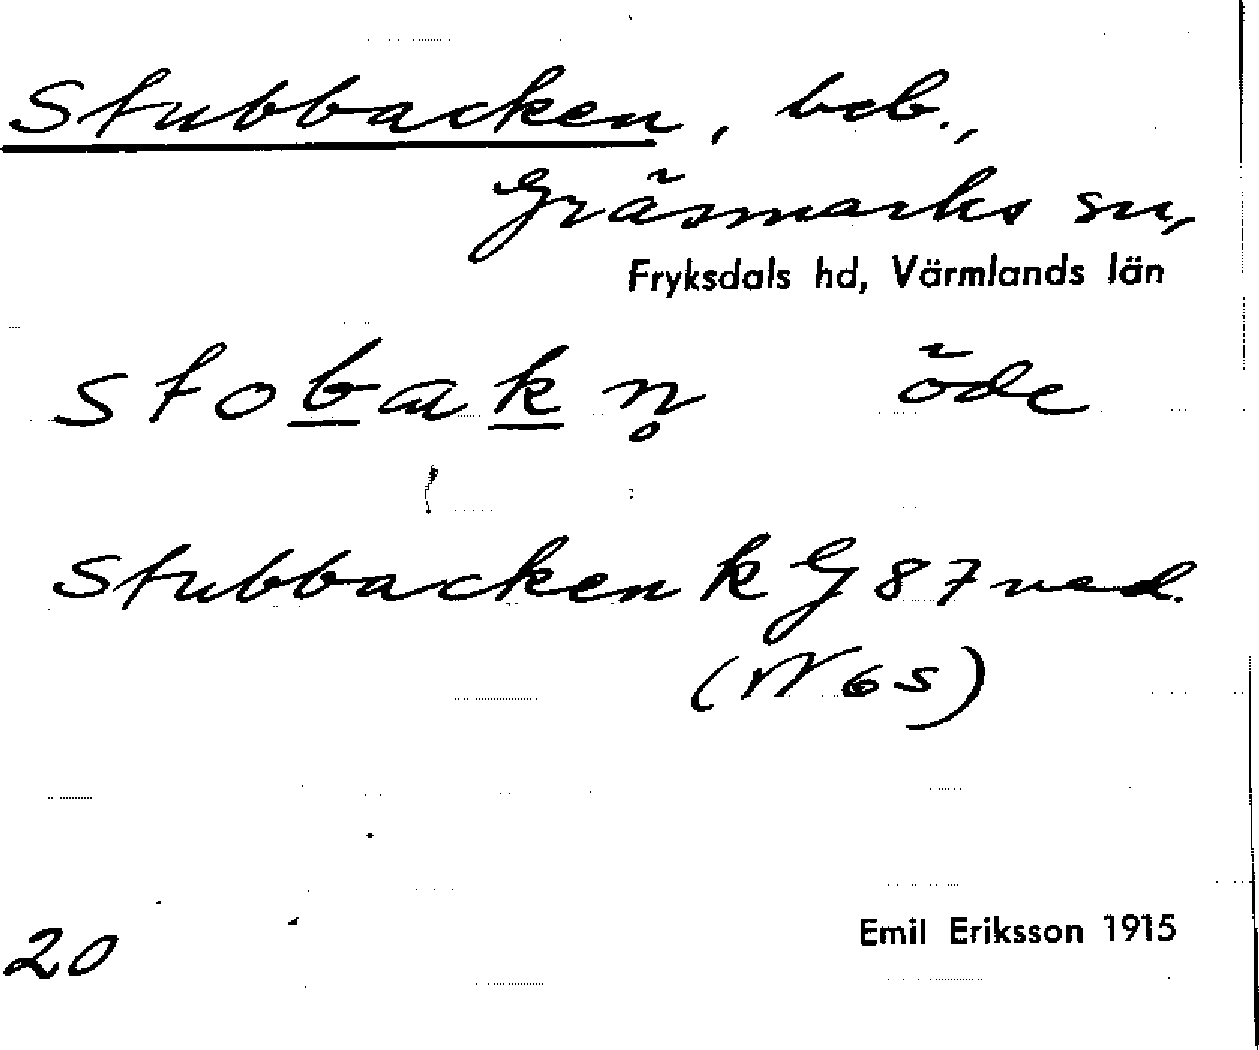 Stubbacken, beb.,
Gräsmarks sn,
Fryksdals hd, Värmlands län
stobakn̥ öde
Stubbacken k G 87 ned.
(W 65)
20
Emil Eriksson 1915